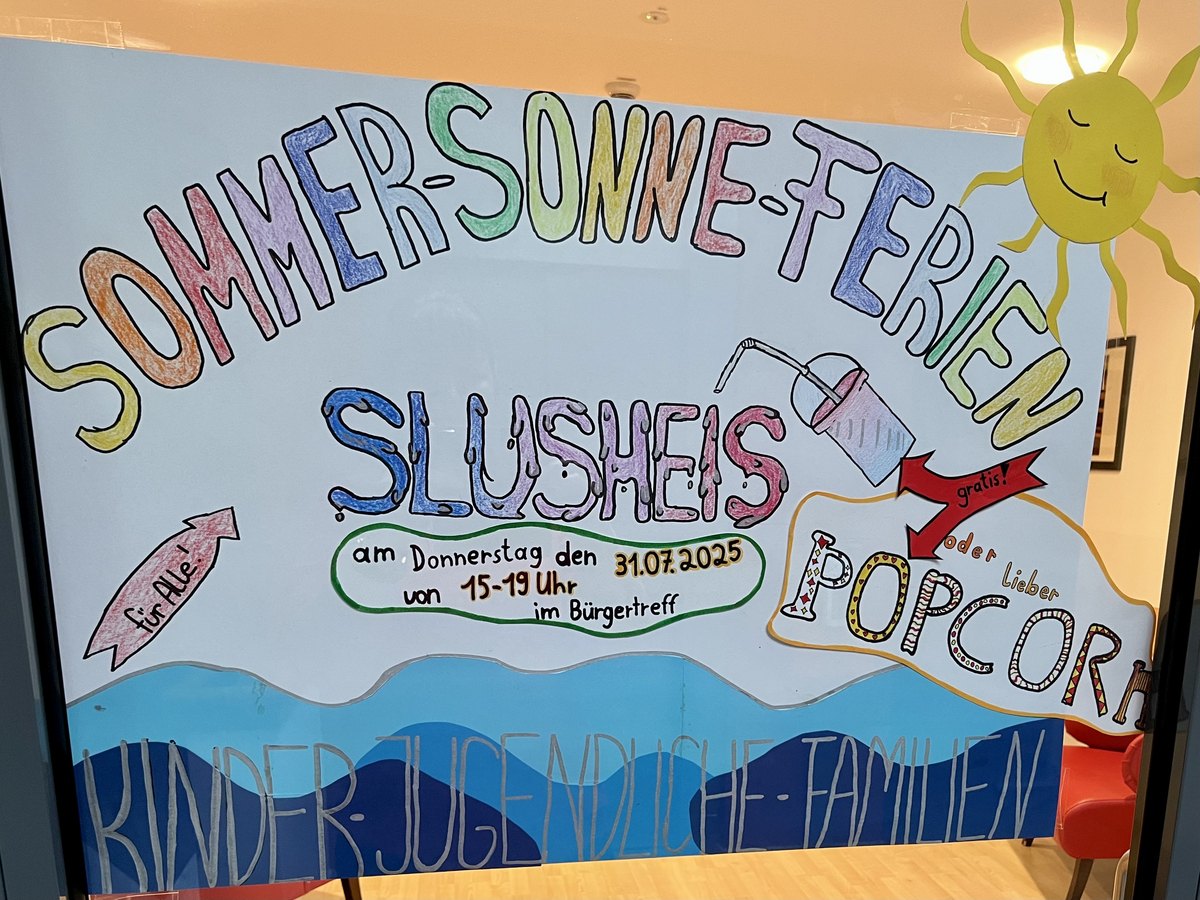 SOMMER-SONNE-FERIEN
SLUSHEIS
gratis!
am Donnerstag den 31.07.2025
von 15-19 Uhr
im Bürgertreff
für Alle!
oder lieber
POPCORN
KINDER-JUGENDLICHE-FAMILIEN